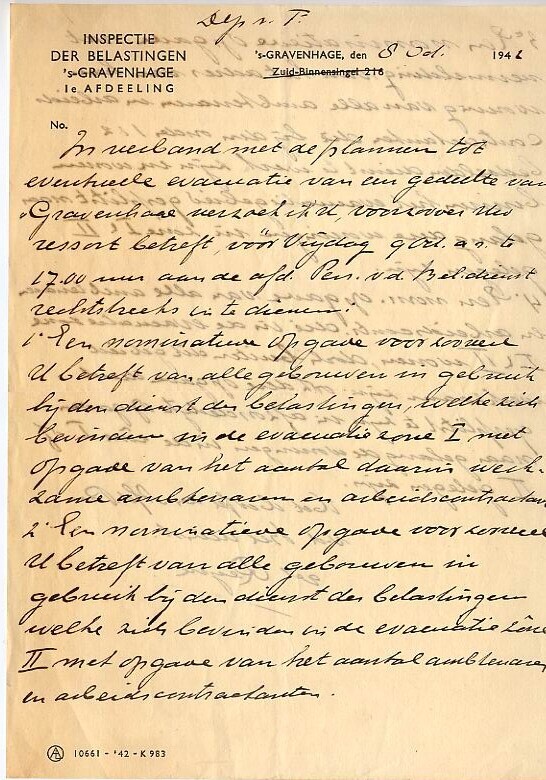 Dep v. F.
INSPECTIE
DER BELASTINGEN
's-GRAVENHAGE
1e AFDEELING
's-GRAVENHAGE, den 8 Oct. 1942
Zuid-Binnensingel 216
No.
In verband met de plannen tot
eventueele evacuatie van een gedeelte van
's Gravenhage verzoek ik U, voorzoover Uw
ressort betreft, vóór Vrijdag 9 Oct. a.s. te
17.00 uur aan de afd. Pers. v.d. Bel.dienst
rechtstreeks in te dienen:
1° Een nominatieve opgave voorzooveel
U betreft van alle gebouwen in gebruik
bij den dienst der belastingen, welke zich
bevinden in de evacuatie zone I met
opgave van het aantal daarin werk-
zame ambtenaren en arbeidscontractan
2° Een nominatieve opgave voor zooveel
U betreft van alle gebouwen in
gebruik bij den dienst der belastingen
welke zich bevinden in de evacuatie zône
II met opgave van het aantal ambtenaren
en arbeidscontractanten.
10661 - '42 - K 983